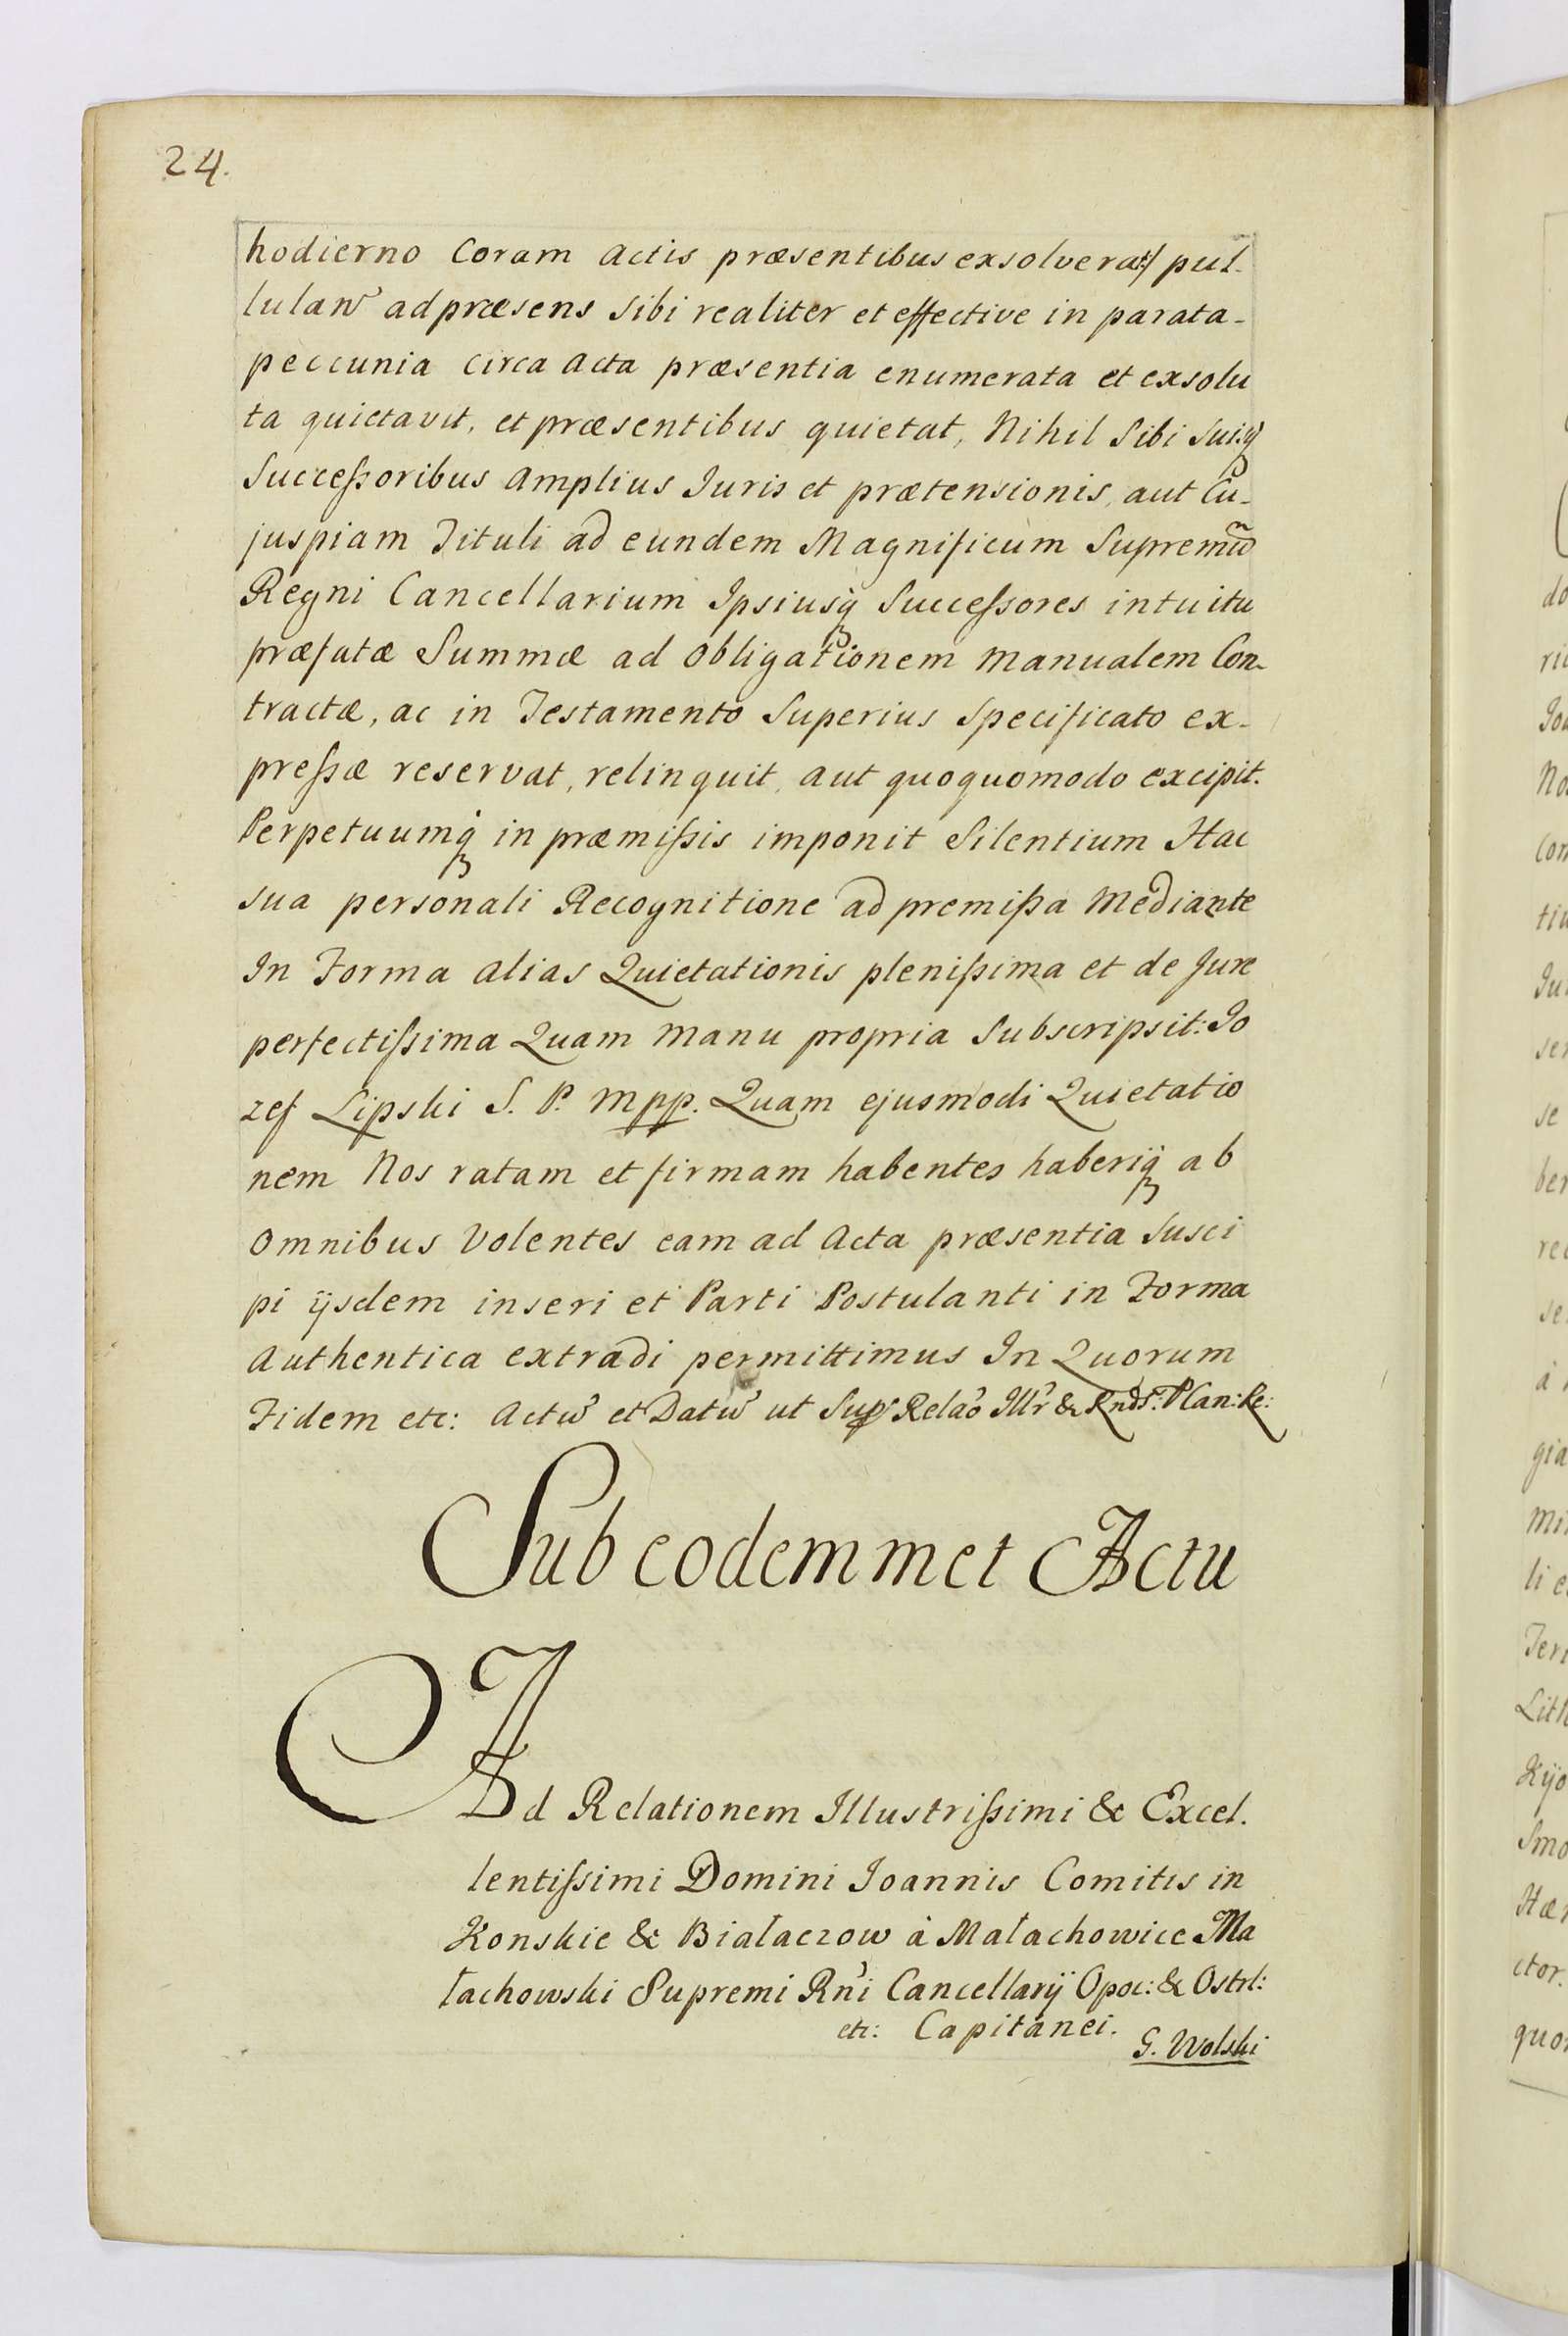 24.
hodierno Coram Actis præsentibus exsolverat:/ pul-
lulan̄ ad præsens sibi realiter et effective in parata-
peccunia circa Acta præsentia enumerata et exsolu
ta quietavit, et præsentibus quietat, Nihil Sibi suisq̨
Successoribus Amplius Juris et prætensionis, aut Cu-
juspiam Tituli ad eundem Magnificum Supremū
Regni Cancellarium Ipsiusq̨ Successores intuitu
præfatæ Summæ ad Obligationem Manualem Con-
tractæ, ac in Testamento Superius Specificato ex-
pressæ reservat, relinquit, aut quoquomodo excipit.
Perpetuumq̨ in præmissis imponit Silentium Hac
sua personali Recognitione ad premissa Mediante
In Forma alias Quietationis plenissima et de Jure
perfectissima Quam Manu propria Subscripsit: Jo
zef Lipski S. P. mpp. Quam ejusmodi Quietatio
nem Nos ratam et firmam habentes haberiq̨ ab
Omnibus Volentes eam ad Acta præsentia Susci
pi ijsdem inseri et Parti Postulanti in Forma
Authentica extradi permittimus In Quorum
Fidem etc: Actū et Datū ut Sup̄ Relāo Illr̄ & Rndi: P Can: Re:
Sub eodemmet Actu
Ad Relationem Illustrissimi & Excel.
lentissimi Domini Joannis Comitis in
Konskie & Białaczow à Małachowice Ma
łachowski Supremi Rn̄i Cancellarij Opoc: & Ostrl:
etc: Capitanei.
G. Wolski